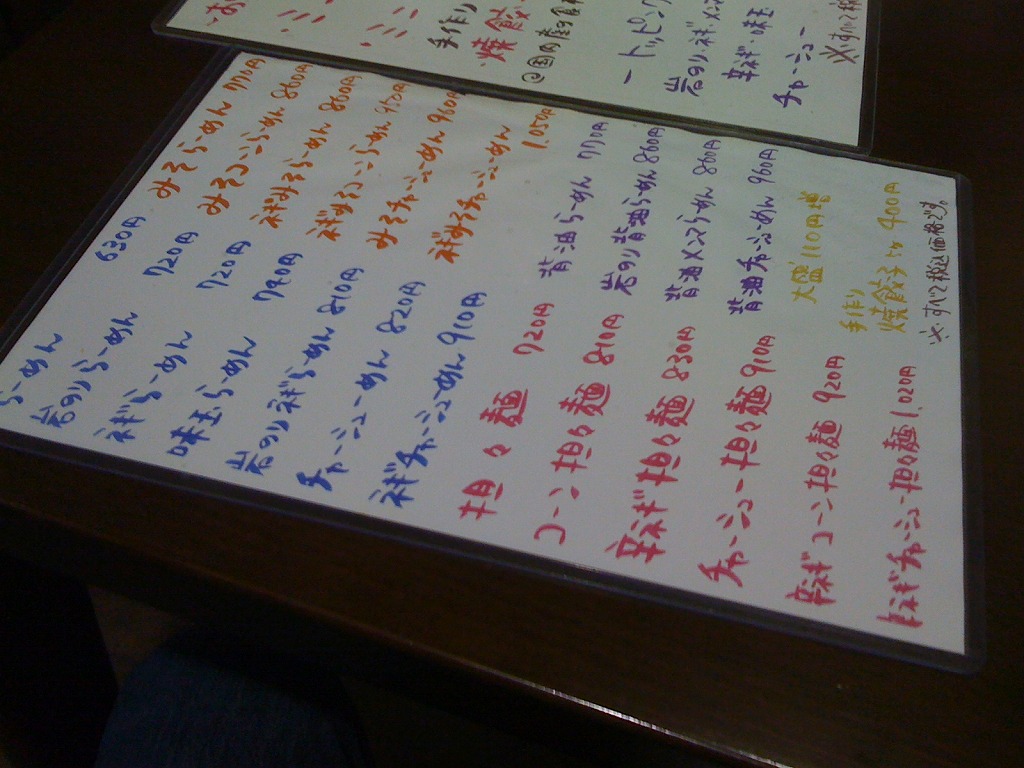 らーめん 630円
岩のりらーめん 720円
ネギらーめん 720円
味玉らーめん 740円
岩のりネギらーめん 810円
チャーシューめん 820円
ネギチャーシューめん 910円
みそらーめん 770円
みそコーンらーめん 860円
ネギみそらーめん 860円
ネギみそコーンらーめん 950円
みそチャーシューめん 960円
ネギみそチャーシューめん 1,050円
担々麺 720円
コーン担々麺 810円
辛ネギ担々麺 830円
チャーシュー担々麺 910円
辛ネギコーン担々麺 920円
辛ネギチャーシュー担々麺 1,020円
背油らーめん 770円
岩のり背油らーめん 860円
背油メンマらーめん 860円
背油チャーシューめん 960円
大盛 110円増
手作り
焼餃子5ヶ 400円
※すべて税込価格です。
手作り
焼餃子
@国内産
ートッピング
岩のり・ネギ・メンマ
辛ネギ・味玉
チャーシュー
※すべて税